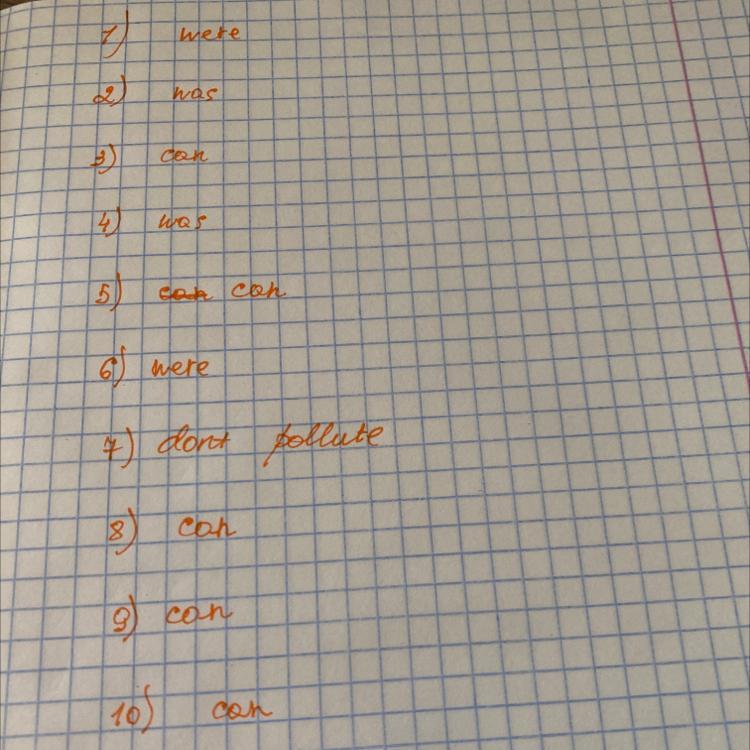 1) were
2) was
3) can
4) was
5) can can
6) were
7) dont pollute
8) can
9) can
10) can